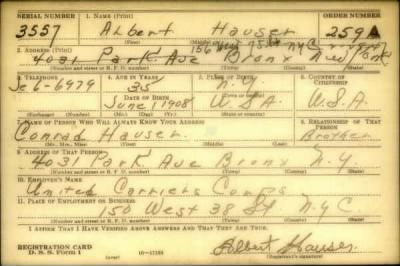 SERIAL NUMBER 1. NAME (Print) ORDER NUMBER
3557 Albert Hauser 259A
(First) (Middle) (Last)
156 West 75 St NYC
2. ADDRESS (Print)
4031 Park Ave Bronx New York
(Number and street or R. F. D. number) (Town) (County) (State)
3. TELEPHONE 4. AGE IN YEARS 5. PLACE OF BIRTH 6. COUNTRY OF CITIZENSHIP
Je 6-6979 35 N.Y.
DATE OF BIRTH
June 1 1908 U.S.A. U.S.A.
(Exchange) (Number) (Mo.) (Day) (Yr.) (State or country)
7. NAME OF PERSON WHO WILL ALWAYS KNOW YOUR ADDRESS 8. RELATIONSHIP OF THAT PERSON
Conrad Hauser Brother
(Mr., Mrs., Miss) (First) (Middle) (Last)
9. ADDRESS OF THAT PERSON
4031 Park Ave Bronx N.Y.
(Number and street or R. F. D. number) (Town) (County) (State)
10. EMPLOYER'S NAME
United Carriers Corps
11. PLACE OF EMPLOYMENT OR BUSINESS
150 West 38 St NYC
(Number and street or R. F. D. number) (Town) (County) (State)
I AFFIRM THAT I HAVE VERIFIED ABOVE ANSWERS AND THAT THEY ARE TRUE.
REGISTRATION CARD
D. S. S. Form 1 (over) Albert Hauser
(Registrant's signature)